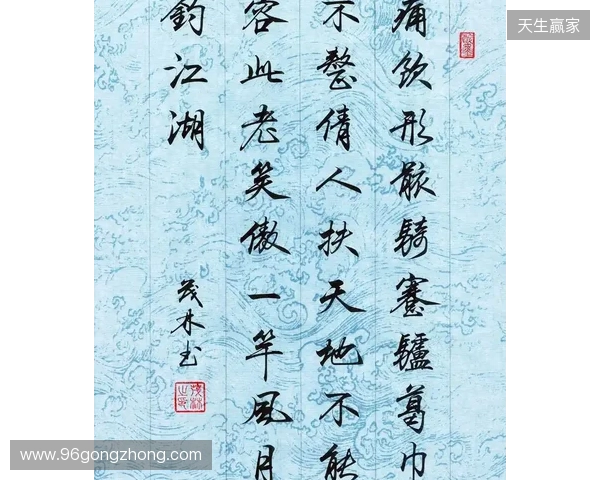 天生赢家
痛饮形骸騎蹇驢葛巾
不整倩人扶天地不能
容此老笑傲一竿風月
釣江湖
茂林书
www.96gongzhong.com